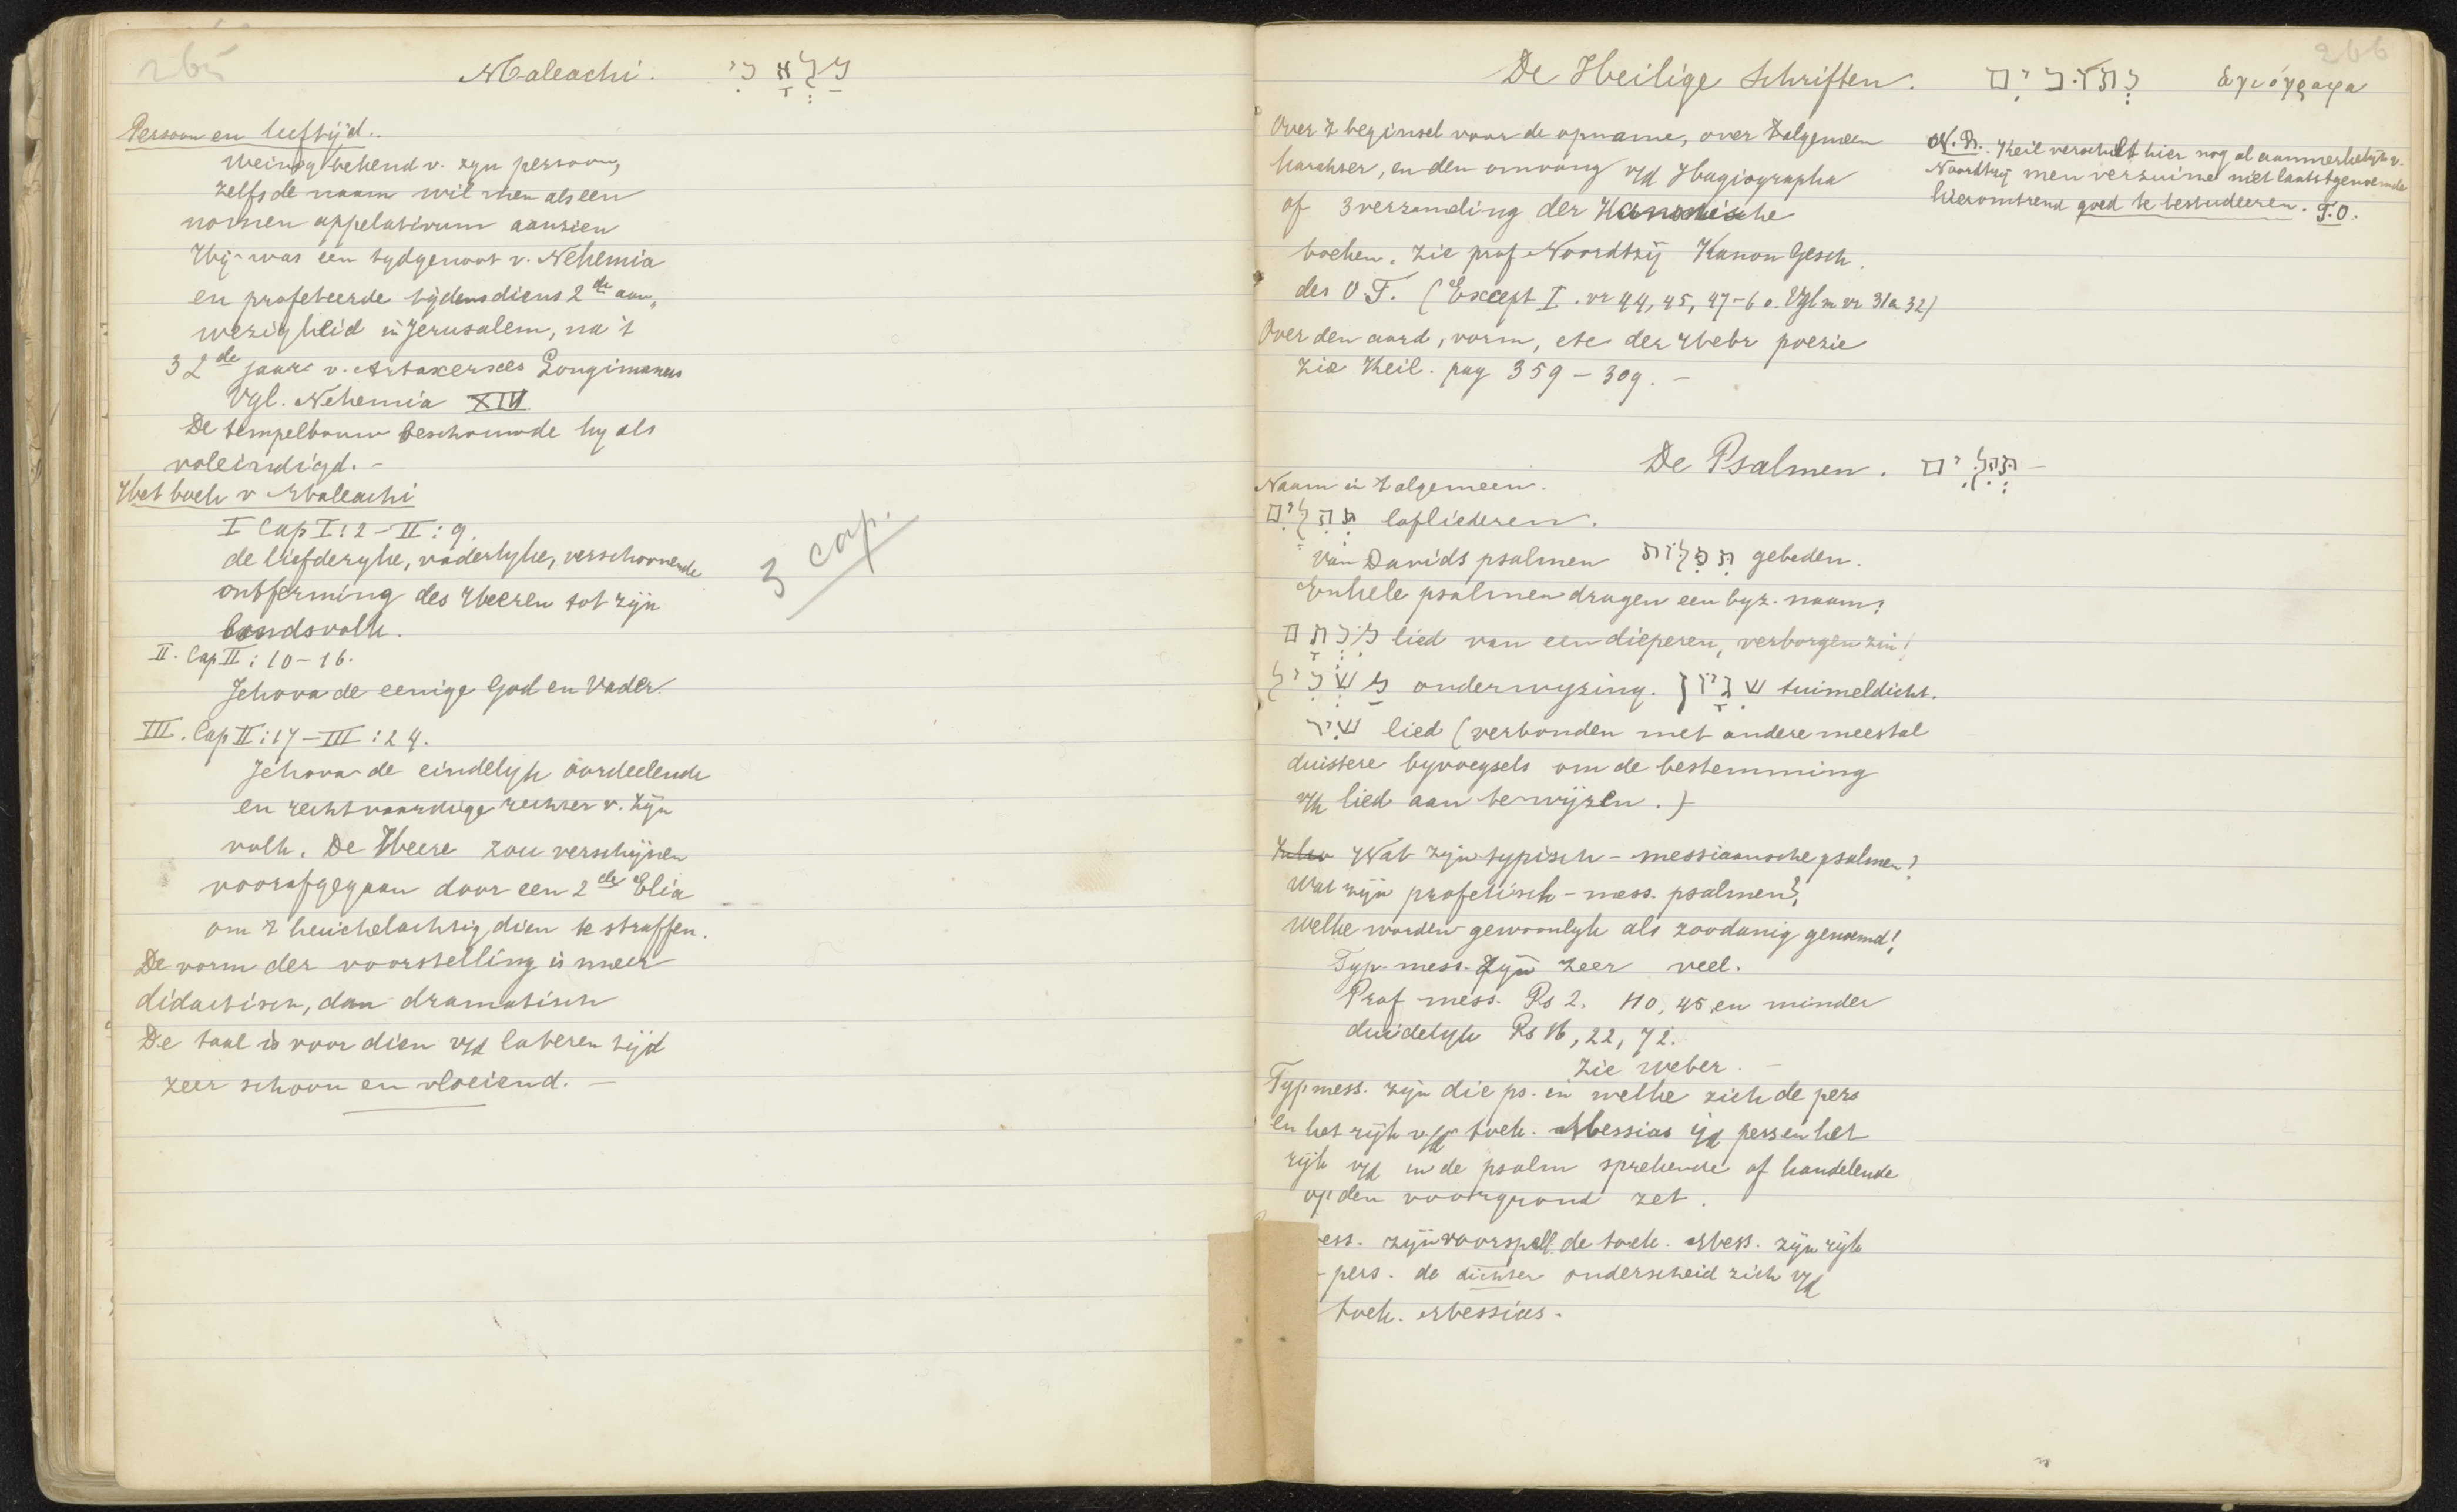 265
Maleachi. מַלְאָכִי
Persoon en leeftijd.
Weinig bekend v. zyn persoon,
zelfs de naam wil men als een
nomen appelativum aanzien
Hij was een tydgenoot v. Nehemia
en profeteerde tijdens diens 2de aan„
wezigheid in Jerusalem, na 't
32de jaar v. Artaxerxes Longimanus
Vgl. Nehemia
De tempelbouw beschouwde hy als
voleindigd. –
Het boek v Maleachi
I Cap I: 2 – II: 9.
de liefderyke, vaderlyke, verschoonende
ontferming des Heeren tot zijn
bondsvolk.
3 cap.
II. Cap II: 10–16.
Jehova de eenige God en Vader.
III. Cap II: 17 – III: 24.
Jehova de eindelyk oordeelende
en rechtvaardige rechter v. zijn
volk. De Heere zou verschijnen
voorafgegaan door een 2de Elia
om 't heuichelachtig dien te straffen.
De vorm der voorstelling is meer
didactisch, dan dramatisch
De taal is voor dien v/d lateren tijd
zeer schoon en vloeiend. –
266
De Heilige Schriften. כְּתוּבִים ἁγιόγραφα
Over 't beginsel voor de opname, over 't algemeen
karakter, en den omvang v/d Hagiographa
of 3 verzameling der Kanonische
boeken. Zie prof Noordtzij Kanon Gesch.
des O.T. (Except I. vr 44, 45, 47–60. Vgl m vr 31a 32)
N.B. Keil verschilt hier nog al aanmerkelijk v.
Noordtzij men verzuime niet laatstgenoemde
hieromtrend goed te bestudeeren. T.O.
Over den aard, vorm, etc der Hebr poezie
zie Keil. pag 359 – 309. –
De Psalmen. תְּהִלִּים –
Naam in 't algemeen.
תְּהִלִּים lofliederen.
van Davids psalmen תְּפִלּוֹת gebeden.
Enkele psalmen dragen een byz. naam:
מִכְתָּם lied van een dieperen, verborgen zin!
מַשְׂכִּיל onderwyzing. שִׁגָּיוֹן tuimeldicht.
שִׁיר lied (verbonden met andere meestal
duistere byvoegsels om de bestemming
v/h lied aan te wijzen.)
Wat zijn typisch – messiaansche psalmen?
Wat zijn profetisch – mess. psalmen?
Welke worden gewoonlyk als zoodanig genoemd!
Typ. mess. zijn zeer veel.
Prof mess. Ps 2. 110, 45 en minder
duidelyk Ps 16, 22, 72.
Zie Weber. –
Typ mess. zijn die ps. in welke zich de pers
en het rijk v/d toek. Messias i/d pers en het
rijk v/d in de psalm sprekende of handelende
op den voorgrond zet.
ess. zijn voorspell. de toek. Mess. zijn rijk
– pers. de dichter onderscheid zich v/d
toek. Messias.